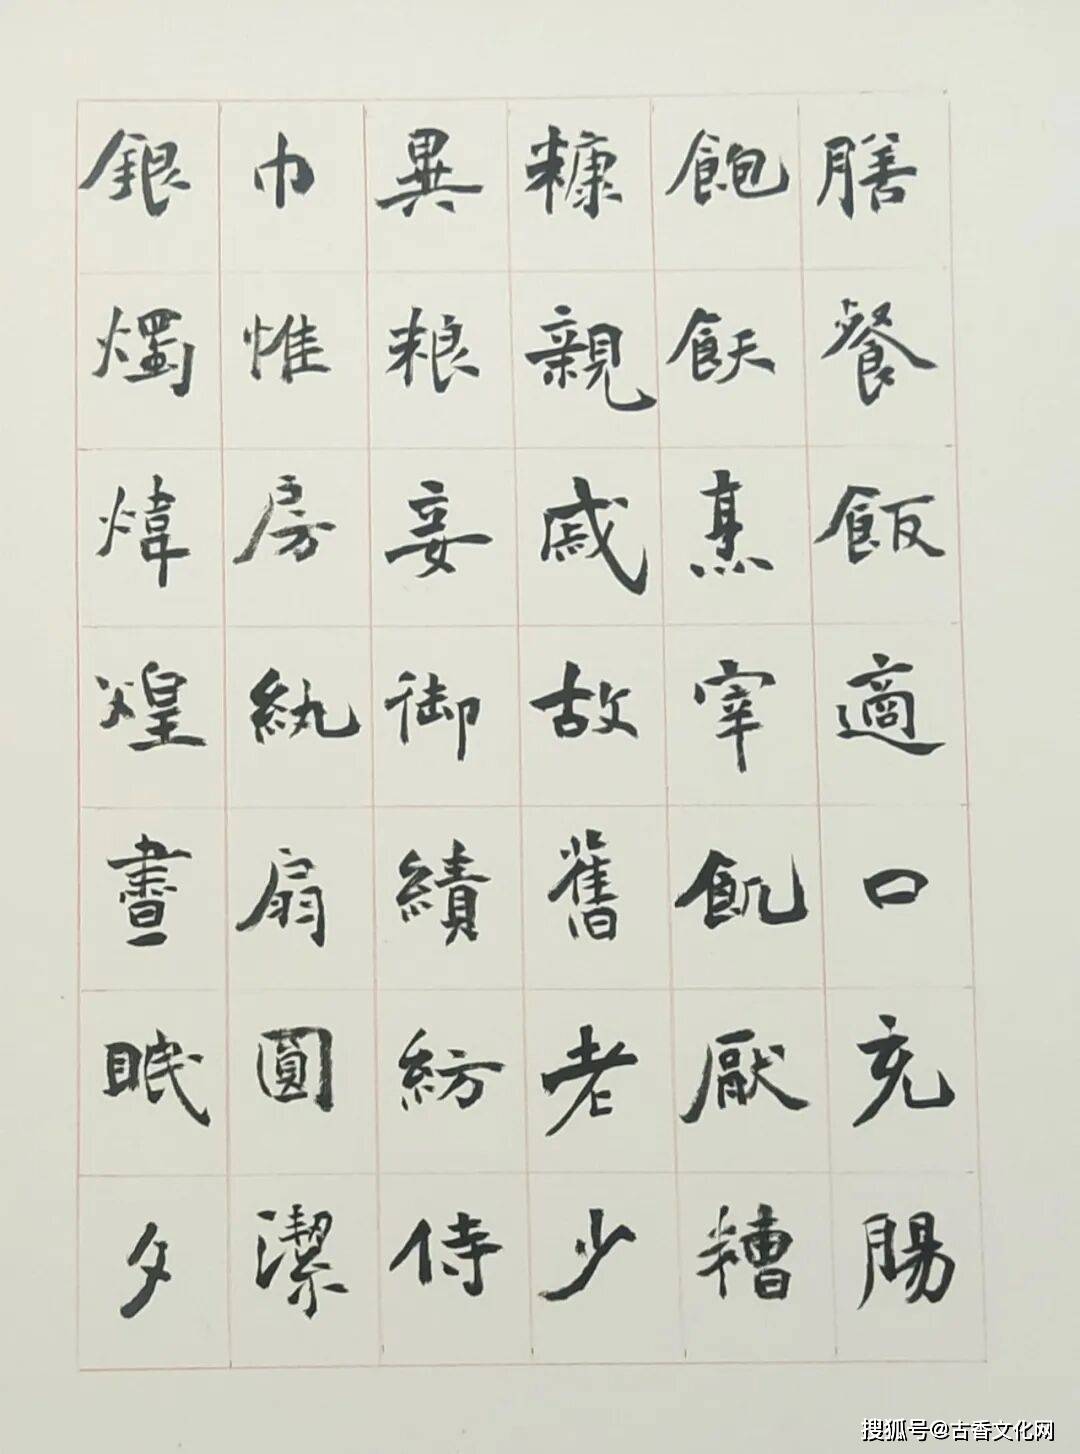 膳餐飯適口充腸
飽飫烹宰飢厭糟
糠親戚故舊老少
異粮妾御績紡侍
巾惟房紈扇圓潔
銀燭煒煌晝眠夕
搜狐号@古香文化网